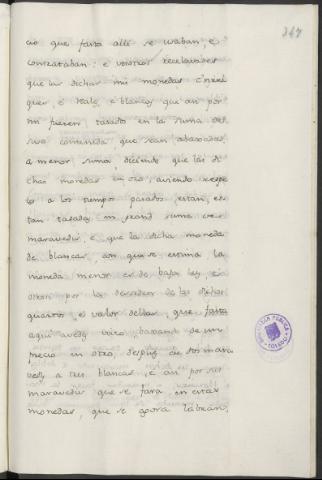 367
cio que fasta alli se usaban, e
contrataban: e vosotros recelavades
que las dichas mis monedas
quer, e Reales, e blancas que asi por
mi fueron tasado en la suma de
suso contenida, que sean abaxadas
a menor suma, diciendo que las di
chas monedas en oro, aviendo respe
to a los tiempos pasados estan, es
tan tasadas en grand suma de
maravedis, e que la dicha moneda
de blancas, con que se estima la
moneda menor es de baja ley, e
otrosi por la de los dichos
quartos, e valor dellas, que fasta
aqui avedes visto, baxando de un
precio en otro, despues de dos mara
vedis a tres blancas, e asi por sus
maravedis que se fara, en estas
monedas, que se agora labran,
BIBLIOTECA PUBLICA
TOLEDO